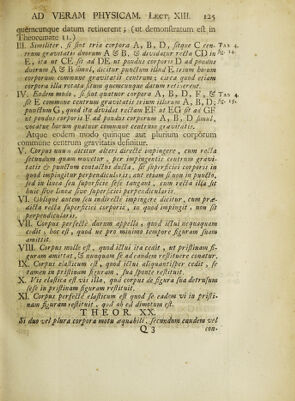 AD VERAM PHYSICAM. LECT. XIII. 125
quiemcunque datum retinerent; (ut demonstratum est in
Theoremate 11.)
III. Similiter, si sint tria corpora A, B, D, sitque C cen- TAB 4.
trum gravitatis duorum A & B, & dividatur recta CD in fig. 14.
E, ita ut CE sit ad DE ut pondus corporis D ad pondus
duorum A & B simul, dicitur punctum illud E trium horum
corporum commune centrum gravitatis; circa quod etiam
corpora illa rotata situm quemcunque datum retinerent.
IV. Eodem modo, si sint quatuor corpora A, B, D, F, & TAB 4.
sit E commune centrum gravitatis trium illorum A, B, D; fig. 15.
punctum G, quod ita dividit rectam EF ut EG sit ad GF
ut pondus corporis F ad pondus corporum A, B, D simul,
vocatur horum quatuor commune centrum gravitatis.
Atque eodem modo quinque aut plurium corporum
commune centrum gravitatis definitur.
V. Corpus unum dicitur alteri directe impingere, cum recta
secundum quam movetur, per impingentis centrum gravi-
tatis & punctum contactus ducta, sit superficiei corporis in
quod impingitur perpendicularis: aut etiam si non in puncto,
sed in linea sua superficie sese tangant, cum recta illa sit
huic sive linea sive superficiei perpendicularis.
VI. Oblique autem seu indirecte impingere dicitur, cum præ-
dicta recta superficiei corporis, in quod impingit, non sit
perpendicularis.
VII. Corpus perfecte durum appello, quod ictui nequaquam
cedit, hoc est, quod ne pro minimo tempore figuram suam
amittit.
VIII. Corpus molle est, quod ictui ita cedit, ut pristinam fi-
guram amittat, & nunquam se ad eandem restituere conatur.
IX. Corpus elasticum est, quod ictui aliquantisper cedit, se
tamen in pristinam figuram, sua sponte restituit.
X. Vis elastica est vis illa, qua corpus de figura sua detrusum
sese in pristinam figuram restituit.
XI. Corpus perfecte elasticum est quod se eadem vi in pristi-
nam figuram restituit, qua ab ea dimotum est.
THEOR. XX.
Si duo vel plura corpora motu æquabili, secundum eandem vel
Q 3 con-